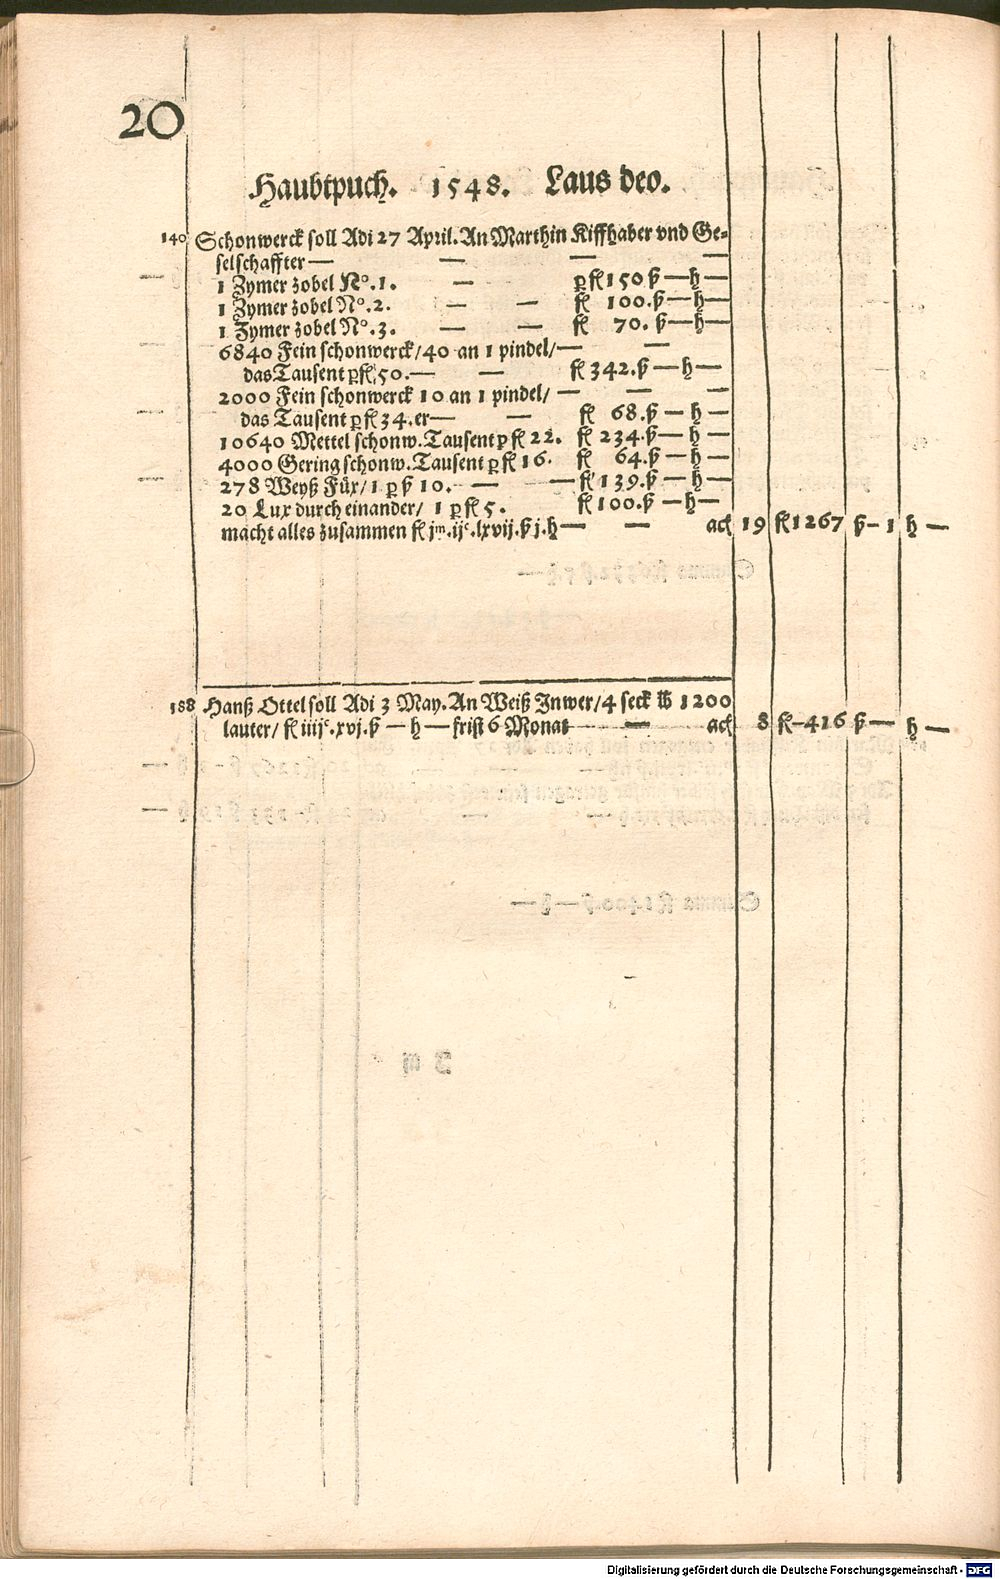 20
Haubtpuch. 1548. Laus deo.
140 Schonwerck soll Adi 27 April. An Marthin Kiffhaber vnd Ge-
selschaffter — — — —
1 Zymer zobel No. 1. — ꝑ fl 150 ß — h —
1 Zymer zobel No. 2. — — fl 100. ß — h —
1 Zymer zobel No. 3. — — fl 70. ß — h —
6840 Fein schonwerck/40 an 1 pindel/ — —
das Tausent ꝑ fl 50. — — fl 342. ß — h —
2000 Fein schonwerck 10 an 1 pindel/ — — —
das Tausent ꝑ fl 34. er — — fl 68. ß — h —
10640 Mettel schonw. Tausent ꝑ fl 22. fl 234. ß — h —
4000 Gering schonw. Tausent ꝑ fl 16. fl 64. ß — h —
278 Weyß Füx/ 1 ꝑ ß 10. — — fl 139. ß — h —
20 Lux durch einander/ 1 ꝑ fl 5. fl 100. ß — h —
macht alles zusammen fl jm. ijc. lxvij. ß j. h — — act 19 fl 1267 ß — 1 h —
188 Hanß Ottel soll Adi 3 May. An Weiß Jnwer/4 seck ℔ 1200
lauter/ fl iiijc. xvj. ß — h — frist 6 Monat — act 8 fl — 416 ß — h —
Digitalisierung gefördert durch die Deutsche Forschungsgemeinschaft - DFG